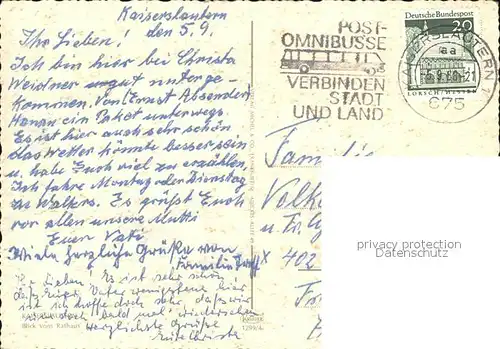 Kaiserslautern
den 5.9.
Ihr Lieben!
Ich bin hier bei Christa
Weidner gut unterge-
kommen. Von Ernst Absender
ein Paket unterwegs.
Es ist hier auch sehr schön
das Wetter könnte besser sein
u. habe Euch viel zu erzählen.
Ich fahre Montag oder Dienstag
zu Walters. Es grüßt Euch
vor allen unsere Mutti
Euer Vati
Viele herzliche Grüße von
Familie
Ihr Lieben! Es ist sehr schön
daß Vater wenigstens hier
ist ich hoffe doch sehr, daß wir
uns doch bald mal wiedersehen
Herzlichste Grüße
Christa
Blick vom Rathaus
POST-
OMNIBUSSE
VERBINDEN
STADT
UND LAND
Deutsche Bundespost
20
LORSCH/HESSEN
KAISERSLAUTERN 1
aa
5.9.68-21
675
Familie
Volk
402
privacy protection
Datenschutz